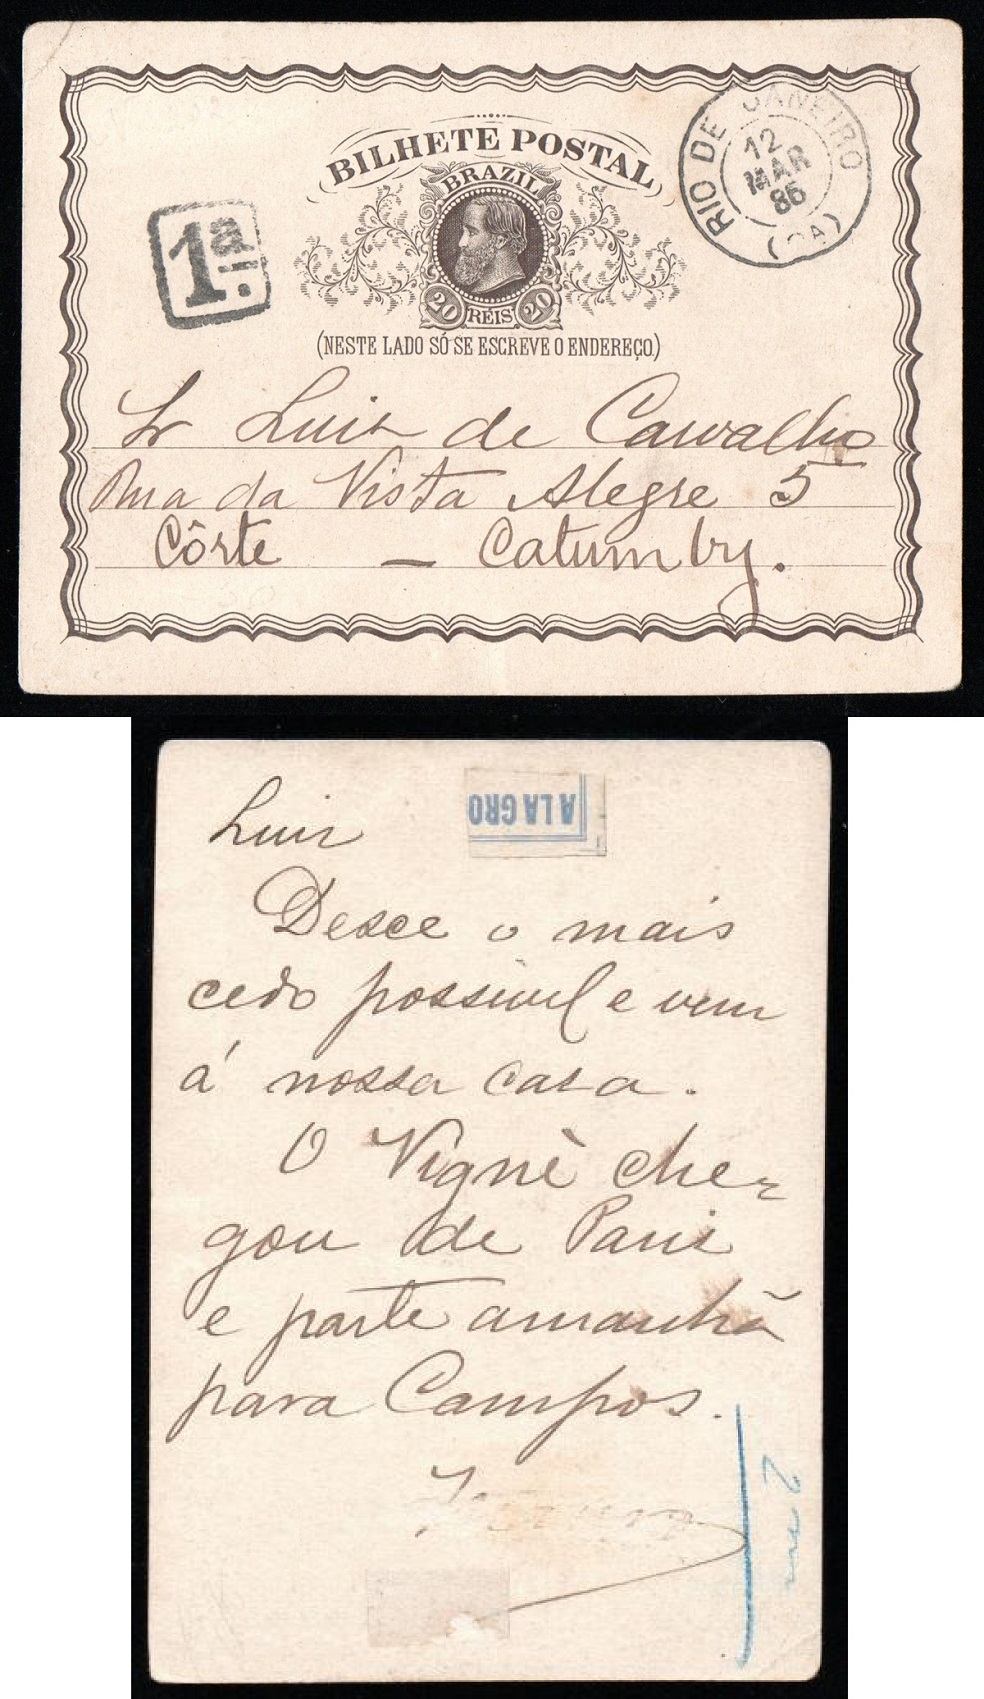 BILHETE POSTAL
BRAZIL
20 REIS 20
(NESTE LADO SÓ SE ESCREVE O ENDEREÇO.)
1a.
RIO DE JANEIRO
12
MAR
86
Sr Luiz de Carvalho
Rua da Vista Alegre 5
Côrte — Catumby.
ALAGRO
Luiz
Desce o mais
cedo possivel e vem
á nossa casa.
O Vignè che-
gou de Pariz
e parte amanhã
para Campos.